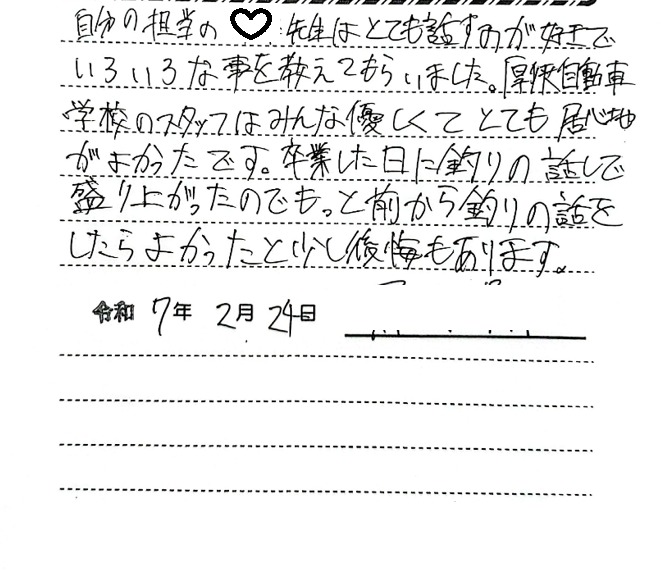 自分の担当の♡先生はとても話すのが好きで
いろいろな事を教えてもらいました。厚狭自動車
学校のスタッフはみんな優しくてとても居心地
がよかったです。卒業した日に釣りの話しで
盛り上がったのでもっと前から釣りの話を
したらよかったと少し後悔もあります。
令和 7年 2月 24日